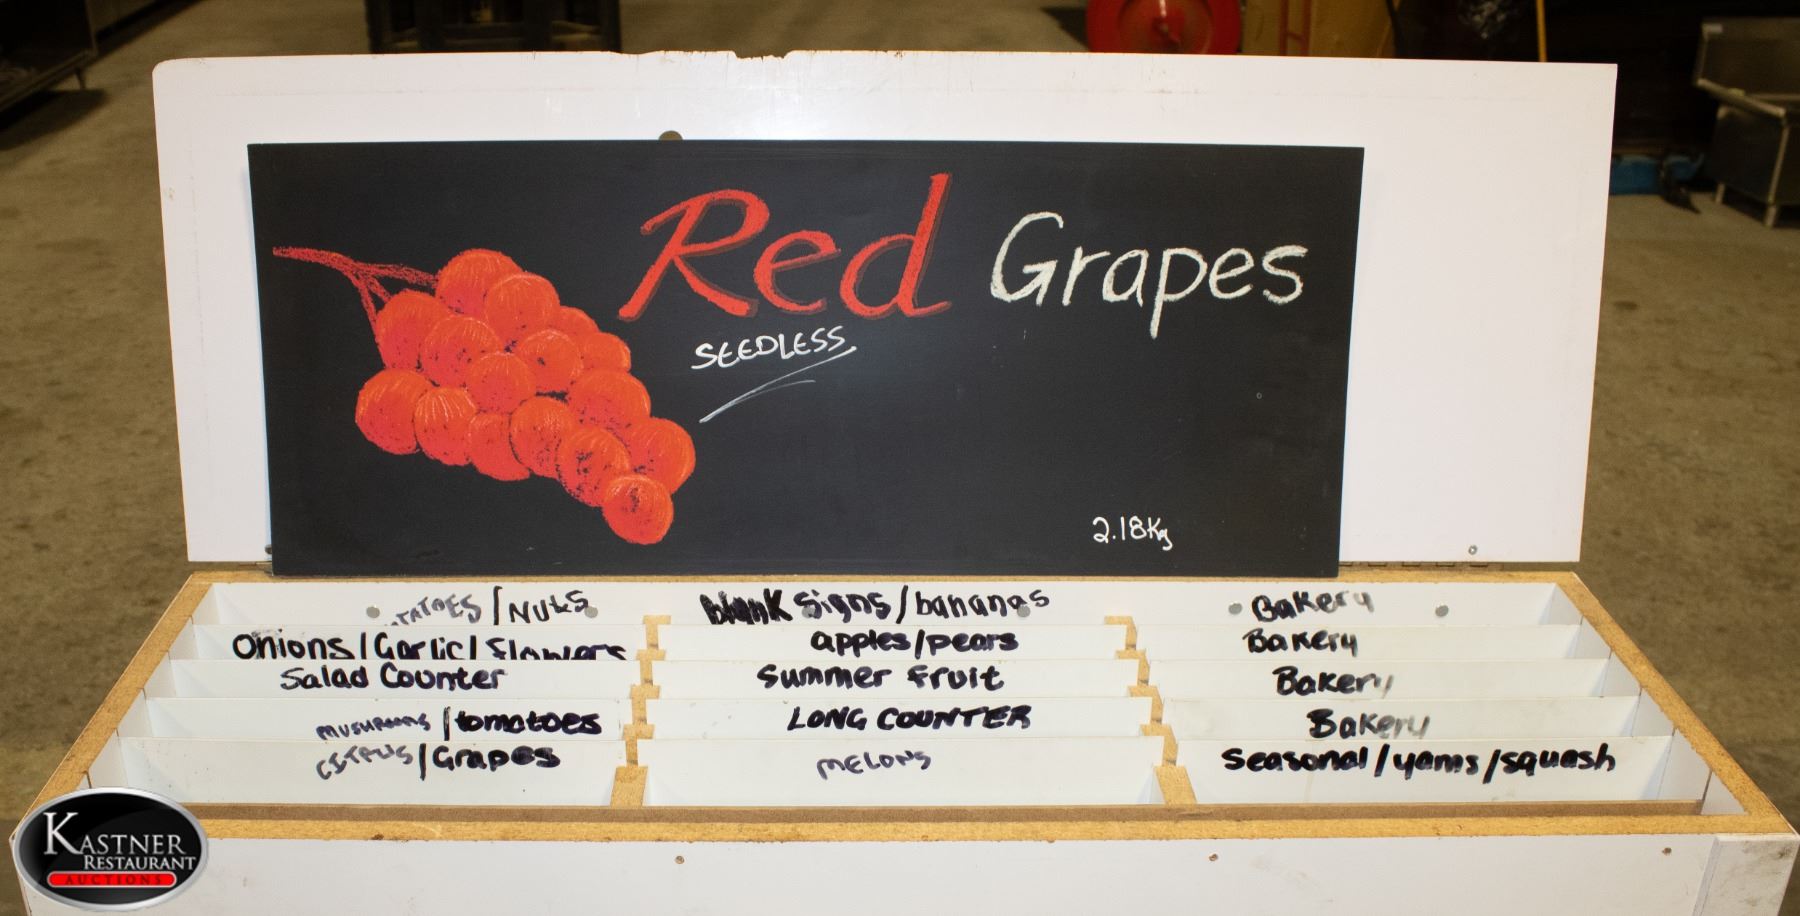 Red Grapes
SEEDLESS
2.18Kg
/NUTS
Blank Signs/bananas
Bakery
Onions/Garlic/Flowers
apples/pears
Bakery
Salad Counter
Summer Fruit
Bakery
MUSHROOMS/tomatoes
LONG COUNTER
Bakery
CITRUS/Grapes
MELONS
Seasonal/yams/squash
KASTNER
RESTAURANT
AUCTIONS